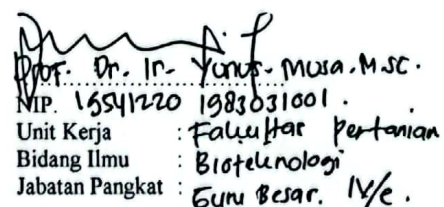 Prof. Dr. Ir. Yunus Musa. M.Sc.
NIP. 19541220 1983031001.
Unit Kerja : Fakultas Pertanian
Bidang Ilmu : Bioteknologi
Jabatan Pangkat : Guru Besar. IV/e.